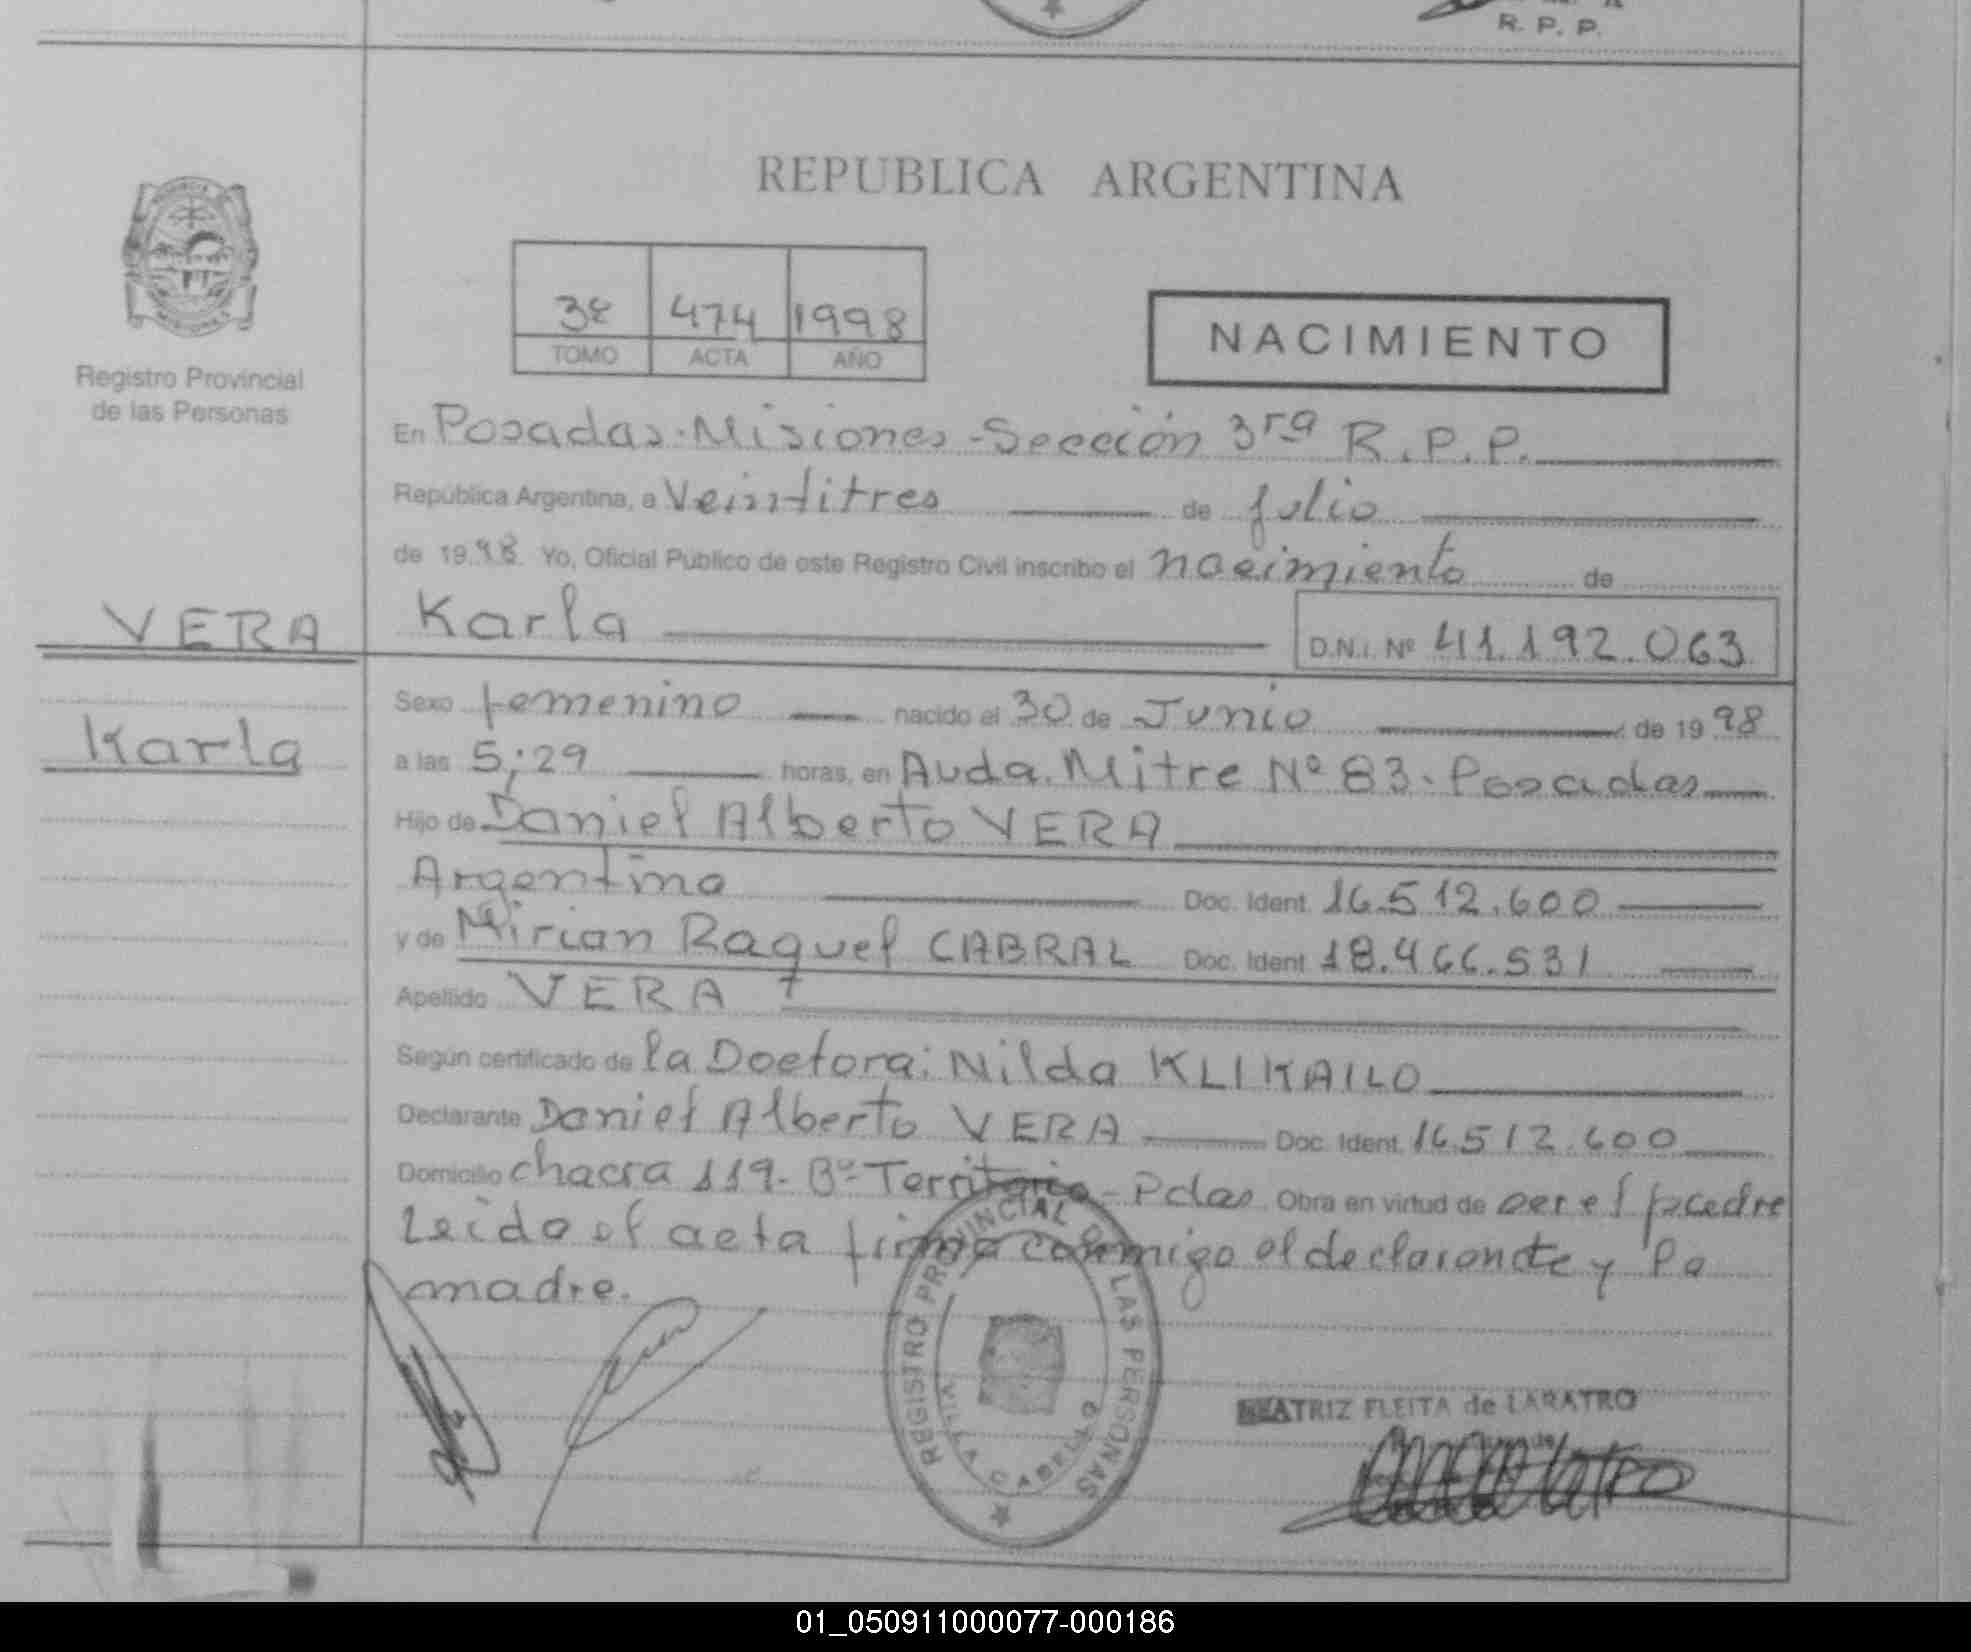 R. P. P.
REPUBLICA ARGENTINA
474 1998
TOMO ACTA AÑO
NACIMIENTO
Registro Provincial
de las Personas
En Posadas-Misiones-Sección 3ra R.P.P.
República Argentina, a Veintitres de Julio
de 1998 Yo, Oficial Público de este Registro Civil inscribo el nacimiento de
VERA Karla D.N.I. Nº 41.192.063
Sexo femenino nacido el 30 de Junio de 1998
Karla
a las 5:29 horas, en Avda. Mitre Nº 83-Posadas
Hijo de Daniel Alberto VERA
Argentino Doc. Ident. 16.512.600
y de Mirian Raquel CABRAL Doc. Ident. 18.466.531
Apellido VERA
Según certificado de la Doctora: Nilda KLIKAILO
Declarante Daniel Alberto VERA Doc. Ident. 16.512.600
Domicilio chacra 119-Bº-Territorio-Pdas Obra en virtud de ser el padre
Leido el acta firma conmigo el declarante y la
madre.
REGISTRO PROVINCIAL DE LAS PERSONAS
VILLA CABELLO
BEATRIZ FLEITA de LARATRO
01_050911000077-000186